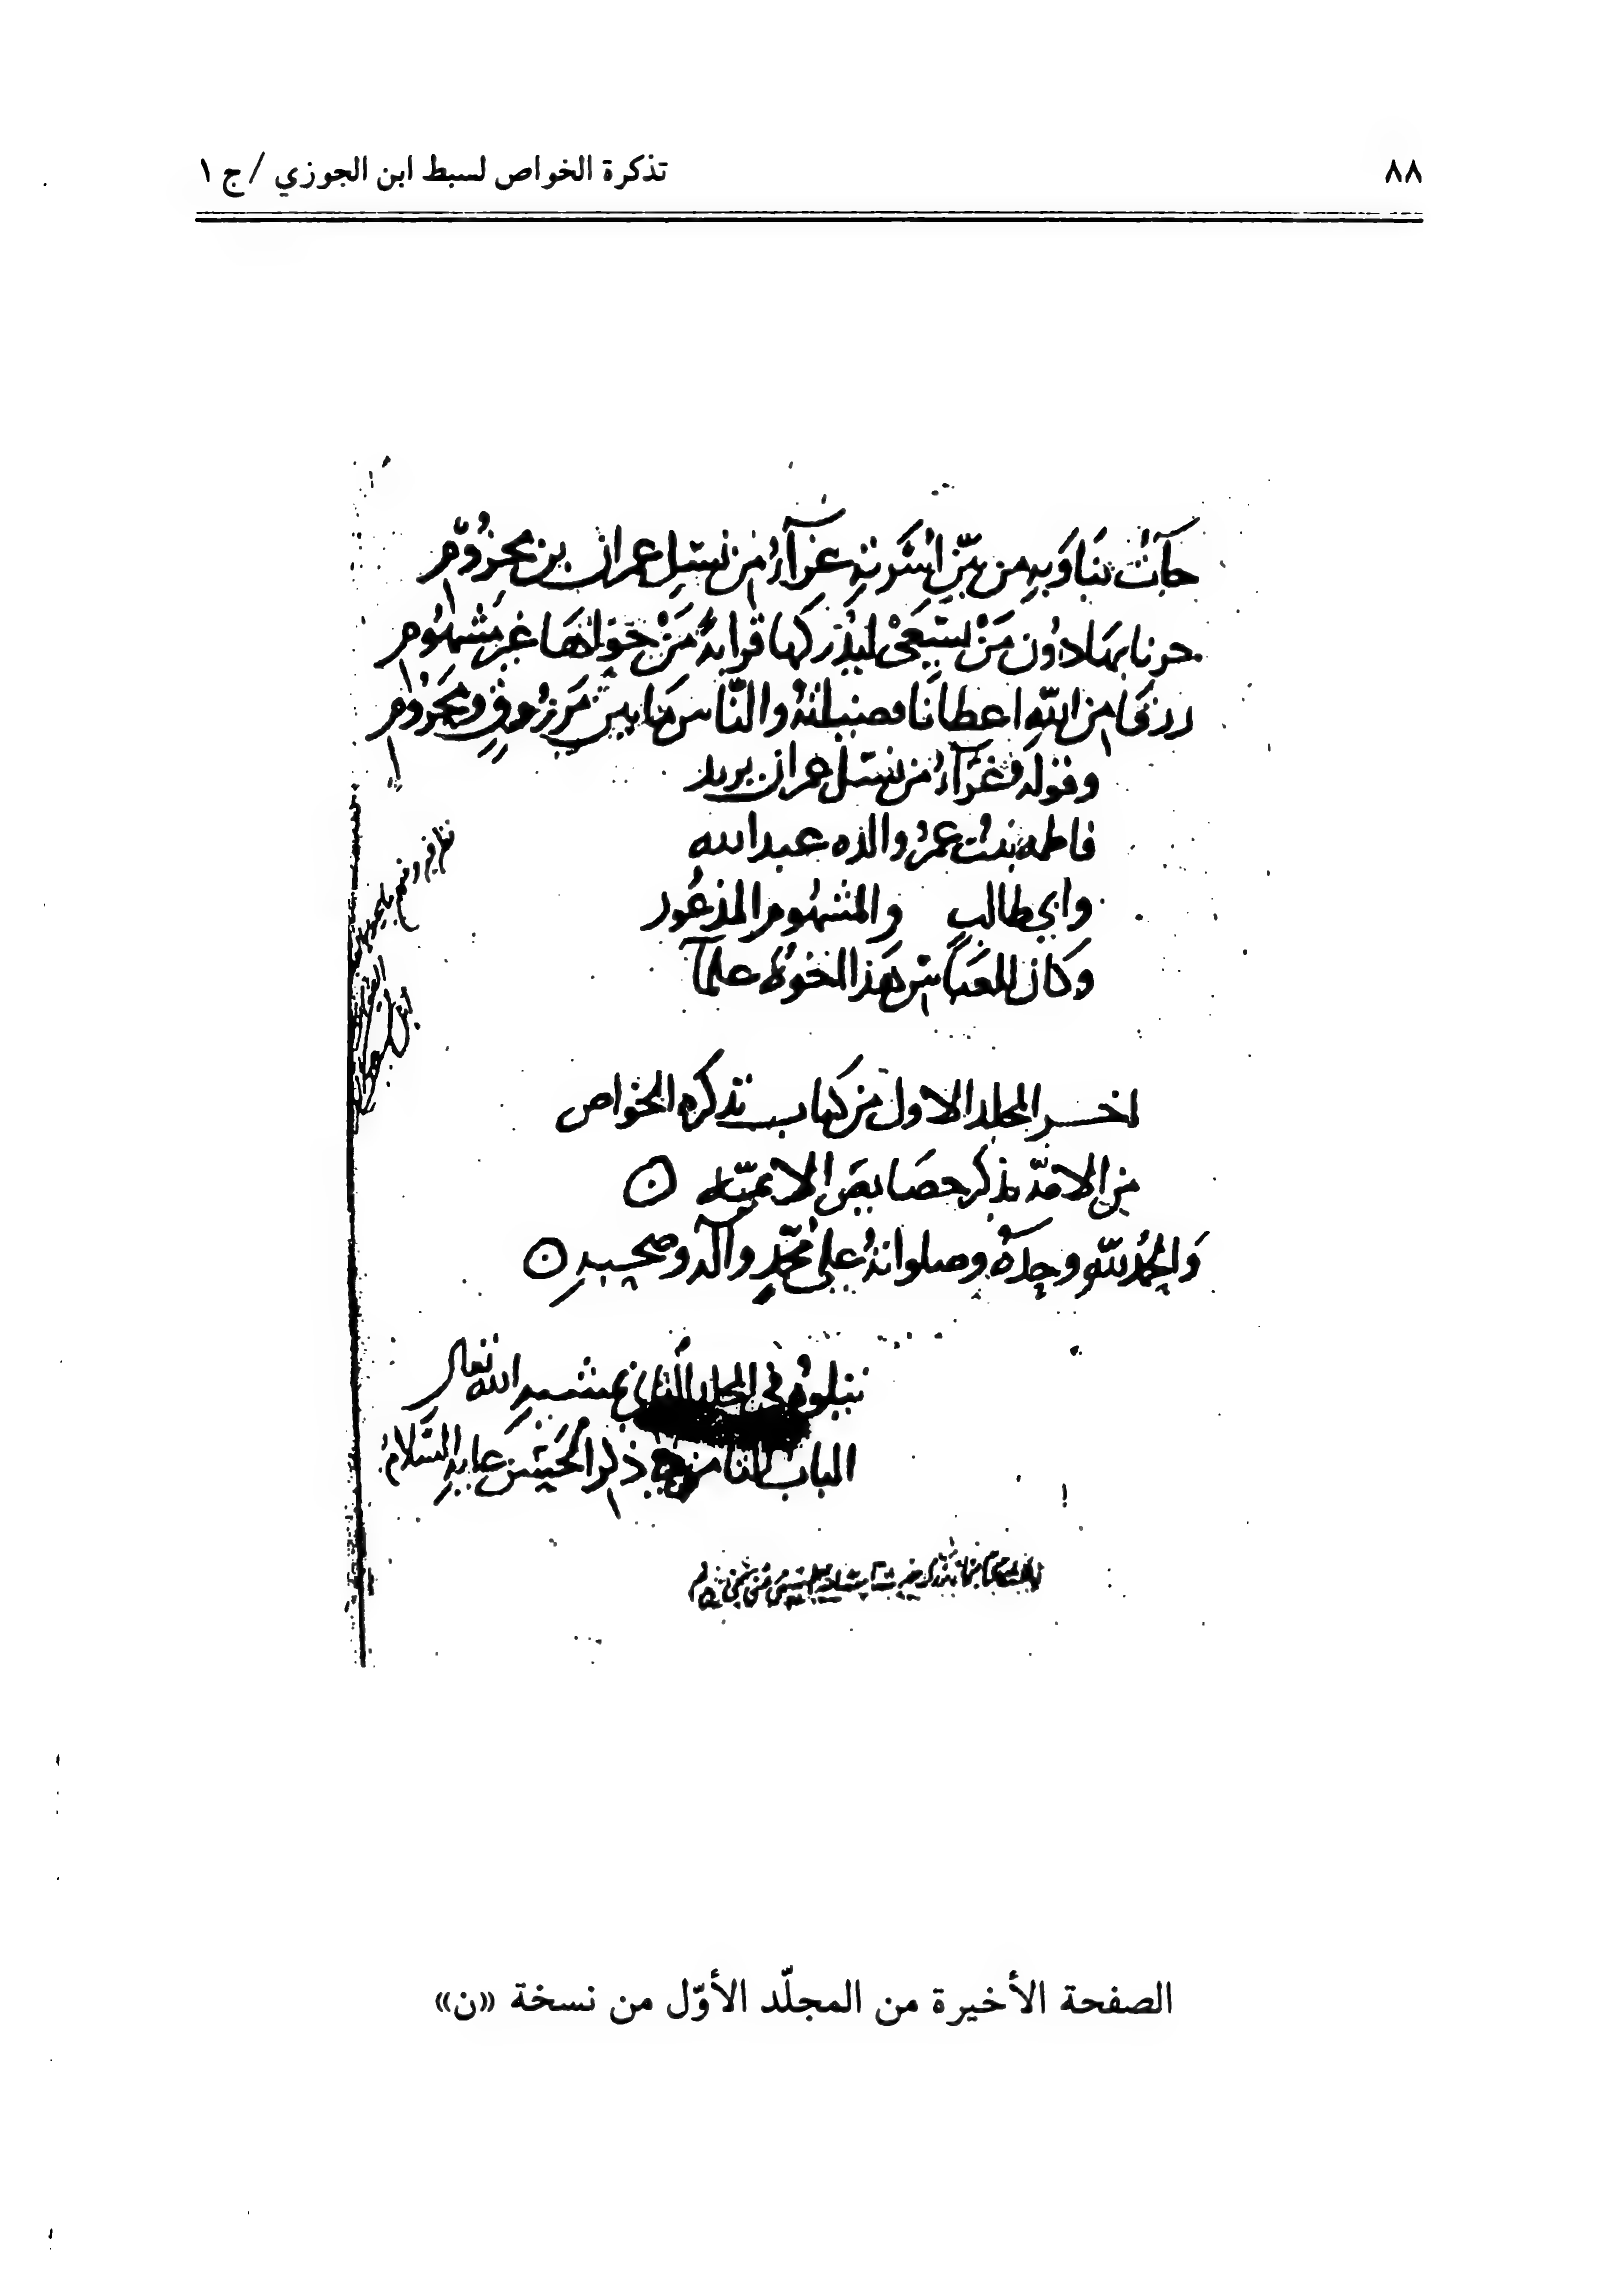 ٨٨
تذكرة الخواص لسبط ابن الجوزي / ج ١
جآت بنا وبه من بين اسرته غرآء من نسل عمران بن مخزوم
حزنا بها دون من يسعى ليدركها قرابة من حولها غير مشهوم
رزقا من الله اعطانا فضيلته والناس ما بين مرزوق ومحروم
وقوله غرآء من نسل عمران يريد
فاطمه بنت عمرو والده عبد الله
وابي طالب والمشهوم المذعور
وكان للعباس هذا الخوله علما
اخر المجلد الاول من كتاب تذكره الخواص
من الامة بذكر خصايص الايمّه
والحمد لله وحده وصلواته على محمد وآله وصحبه
يتلوه في المجلد الثاني بمشيه الله تعالى
الباب الثامن في ذكر الحسين عليه السلام
الصفحة الأخيرة من المجلّد الأوّل من نسخة «ن»